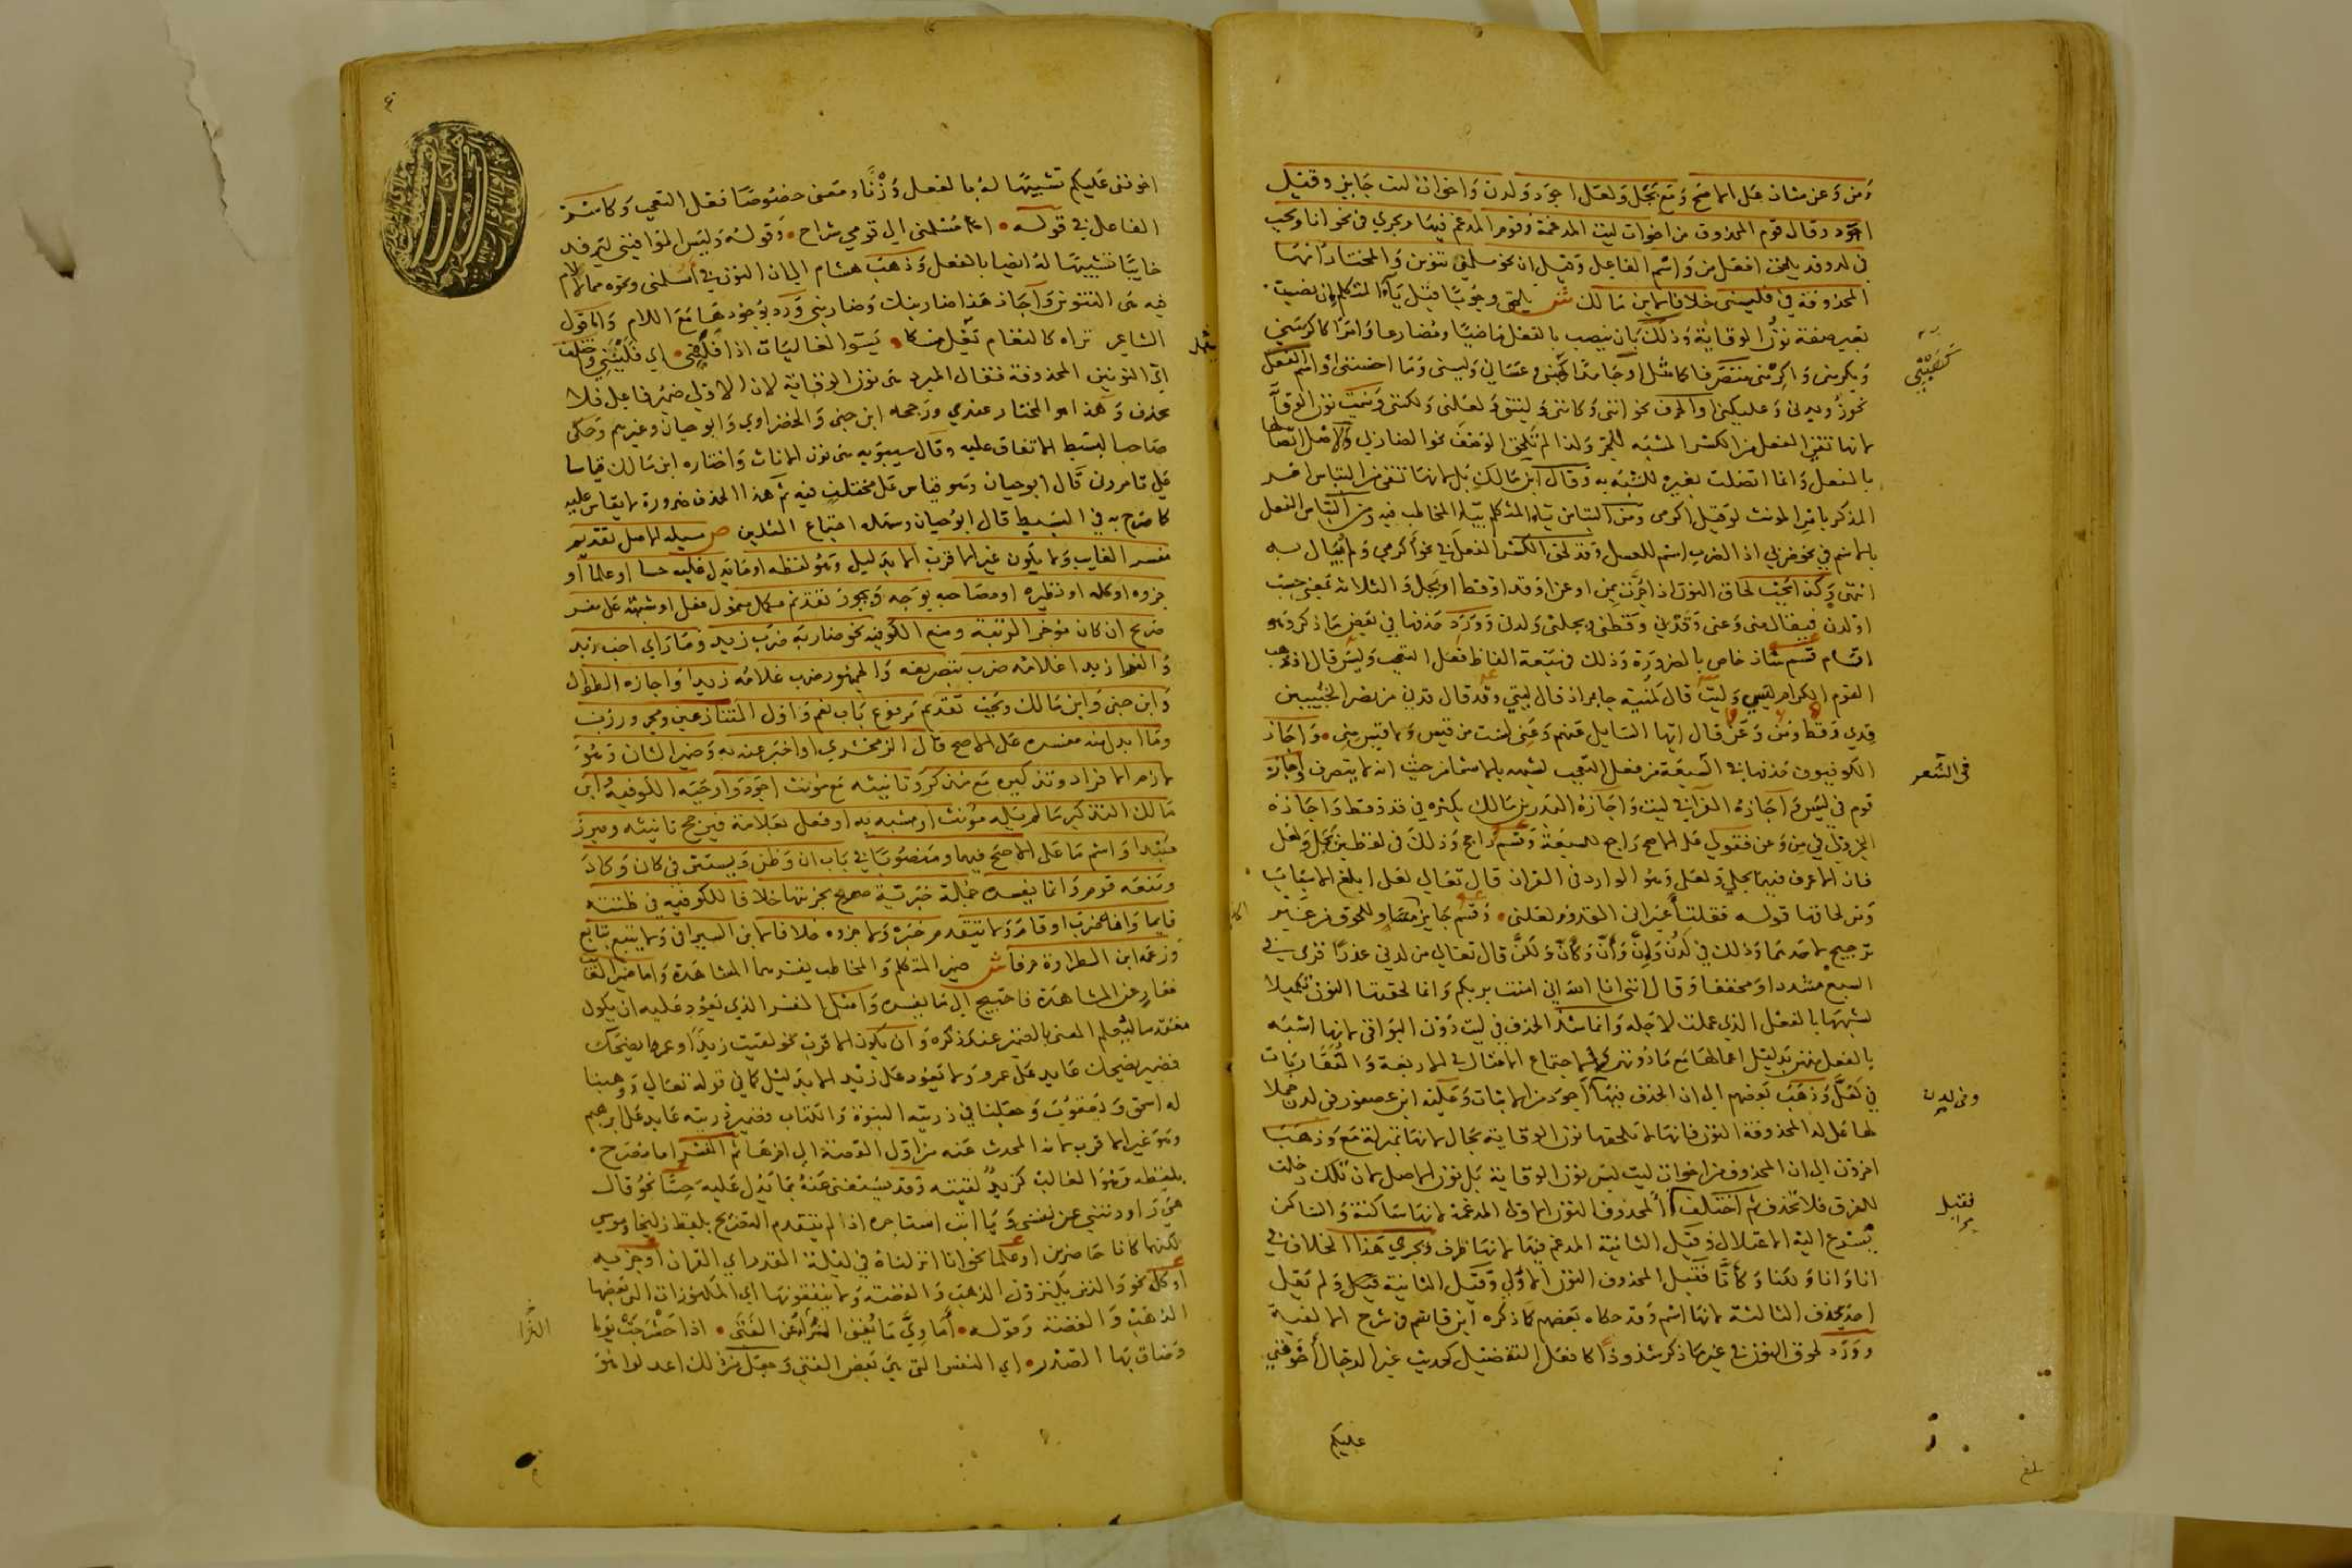 ومن وعن شاذ على الاصح ومع بجل ولعل اجود ولدن واخوات ليت جايز وقيل
اجود وقال قوم المحذوف من اخوات ليت المدغمة وقوم المدغم فيها ويجري في نحو انا ويجب
في لدن وقد يلحق افعل من واسم الفاعل وقيل ان نحو مسلمني تنوين والمختار انها
المحذوفة في فليني خلافا لابن مالك ش يلحق وجوبا قبل ياء المتكلم ان نصبت
بغير صفة نون الوقاية وذلك بان ينصب بالفعل ماضيا ومضارعا وامرا كاكرمني
ويكرمني واكرمني متصرفا كامثل او جامدا كهبني وعساني وليسني وما احسنني او اسم الفعل
نحو رويدني وعليكني او الحرف نحو انني وكانني وليتني ولعلني ولكنني وسميت نون الوقاية
لانها تقي الفعل من الكسر المشبه للجر ولذا لم تلحق الوصف نحو الضاربي والاصل اتصالها
بالفعل وانما اتصلت بغيره للشبه به وقال ابن مالك بل لانها تقي من التباس امر
المذكر بامر المونث لو قيل اكرمي ومن التباس ياء المتكلم بياء المخاطب فيه ومن التباس الفعل
بالاسم في نحو ضربي اذا الضرب اسم للعسل وقد لحق الكسر الفعل في نحو اكرمي ولم يبال به
انتهى وكذا يجب لحاق النون اذا جرت بمن او عن او قد او قط او بجل والثلاثة بمعنى حسب
او لدن فيقال مني وعني وقدني وقطني وبجلني ولدني وورد حذفها في بعض ما ذكر وهو
اقسام قسم شاذ خاص بالضرورة وذلك في سبعة الفاظ فعل التعجب وليس قال اذ ذهب
القوم الكرام ليسي وليت قال كمنية جابر اذ قال ليتي وقد قال قدني من نصر الخبيبين
قدي وقط ومن وعن قال ايها السايل عنهم وعني لست من قيس ولا قيس مني واجاز
الكوفيون حذفها في السعة من فعل التعجب لشبهه بالاسماء من حيث انه لا يتصرف واجازه
قوم في ليس واجازه الفرا في ليت واجازه البدر بن مالك بكثرة في قد وقط واجازه
الجزولي في من وعن فقولي على الاصح راجع للسبعة وقسم راجح وذلك في لفظين بجل ولعل
فان الاعرف فيهما بجلي ولعلي وهو الوارد في القران قال تعالى لعلي ابلغ الاسباب
ومن لحاقها قوله فقلت اعيراني القدوم لعلني وقسم جايز حذفا ولحوقا من غير
ترجيح لاحدهما وذلك في لدن وان وان وكان ولكن قال تعالى من لدني عذرا قرئ في
السبع مشددا ومخففا وقال انني انا الله اني امنت بربكم وانما لحقتها النون تكميلا
لشبهها بالفعل الذي عملت لاجله وانما شذ الحذف في ليت دون البواقي لانها اشبه
بالفعل منهن بدليل اعمالها مع ما دونهن ولاجتماع الامثال في الاربعة والمتقاربات
في لعل وذهب بعضهم الى ان الحذف فيها اجود من الاثبات وعليه ابن عصفور في لدن حملا
لها على لد المحذوفة النون فانها لا تلحقها نون الوقاية بحال لانها بمنزلة مع وذهب
اخرون الى ان المحذوف من اخوات ليت ليس نون الوقاية بل نون الاصل لان تلك دخلت
للفرق فلا تحذف ثم اختلف المحذوف النون الاولى المدغمة لانها ساكنة والساكن
يسرع اليه الاعتلال وقيل الثانية المدغم فيها لانها طرف ويجري هذا الخلاف في
انا وانا ولكنا وكانا فقيل المحذوف النون الاولى وقيل الثانية ولم يقل
احد بحذف الثالثة لانها اسم وقد حكاه بعضهم كما ذكره ابن قاسم في شرح الالفية
وورد لحوق النون في غير ما ذكر شذوذا كافعل التفضيل كحديث غير الدجال اخوفني
عليكم
كضربني
في الشعر
وفي لدن
فقيل
بلغ
اخوفني عليكم تشبيها له بالفعل وزنا ومعنى خصوصا فعل التعجب وكاسم
الفاعل في قوله امسلمني الى قومي شراح وقوله وليس الموافيني ليرفد
خايبا تشبيها له ايضا بالفعل وذهب هشام الى ان النون في امسلمني ونحوه مما لا لام
فيه هي التنوين واجاز هذا ضاربنك وضاربني ورد بوجودها مع اللام واما قول
الشاعر تراه كالثغام يعل مسكا يسوء الفاليات اذا فليني اي فلينني وحذف
احدى النونين المحذوفة فقال المبرد هي نون الوقاية لان الاولى ضمير فاعل فلا
يحذف وهذا هو المختار عندي ورجحه ابن جني والخضراوي وابو حيان وغيرهم وحكى
صاحب البسيط الاتفاق عليه وقال سيبويه هي نون الاناث واختاره ابن مالك قياسا
على تامروني قال ابو حيان وهو قياس على مختلف فيه ثم هذا الحذف ضرورة لا يقاس عليه
كما صرح به في البسيط قال ابو حيان وسهله اجتماع المثلين ص مسيلة الاصل تقديم
مفسر الغايب ولا يكون غير الاقرب الا بدليل وهو لفظه او ما يدل عليه حسا او علما او
جزوه او كله او نظيره او مصاحبه بوجه ويجوز تقدم مكمل معمول فعل او شبهه على مفسر
صريح ان كان موخر الرتبة ومنع الكوفيه نحو ضاربه ضرب زيد وما راى احب زيد
والفرا زيدا غلامه ضرب بتصريفه والجمهور ضرب غلامه زيدا واجازه الطوال
وابن جني وابن مالك ويجب تقدم مرفوع باب نعم واول المتنازعين ومجرور رب
وما ابدل منه مفسره على الاصح قال الزمخشري او اخبر عنه به وضمير الشان وهو
لازم الافراد وتذكيره مع مذكر وتانيثه مع مونث اجود واوجبه الكوفيه ابن
مالك التذكير ما لم يله مونث او مشبه به او فعل بعلامة فيرجح تانيثه ويبرز
مبتدا واسم ما على الاصح فيهما ومنصوبا في باب ان وظن ويستتر في كان وكاد
ومنعه قوم وانما يفسره جملة خبرية صرح بجزئيها خلافا للكوفيه في ظننته
قايما وانه ضرب او قام ولا يتقدم خبره ولا جزوه خلافا لابن السيرافي ولا يتبع بتابع
وزعمه ابن الطراوة حرفا ش ضمير المتكلم والمخاطب يفسرهما المشاهدة واما ضمير الغايب
فعار عن المشاهدة فاحتيج الى ما يفسره واصل المفسر الذي يعود عليه ان يكون
مقدما ليعلم المعني بالضمير عند ذكره وان يكون الاقرب نحو لقيت زيدا وعمرا يضحك
فضمير يضحك عايد على عمرو ولا يعود على زيد الا بدليل كما في قوله تعالى ووهبنا
له اسحق ويعقوب وجعلنا في ذريته النبوة والكتاب فضمير ذريته عايد على ابرهيم
وهو غير الاقرب لانه المحدث عنه من اول القصة الى اخرها ثم المفسر اما مصرح
بلفظه وهو الغالب كزيد لقيته وقد يستغنى عنه بما يدل عليه حسا نحو قال
هي راودتني عن نفسي ويا ابت استاجره اذا لم يتقدم التصريح بلفظ زليخا وموسى
لكونهما كانا حاضرين او علما نحو انا انزلناه في ليلة القدر اي القران او جزيه
او كله نحو والذين يكنزون الذهب والفضة ولا ينفقونها اي المكنوزات التي بعضها
الذهب والفضة وقوله اماوي ما يغني الثراء عن الفتى اذا حشرجت يوما
وضاق بها الصدر اي النفس التي هي بعض الفتى وجعل من ذلك اعدلوا هو